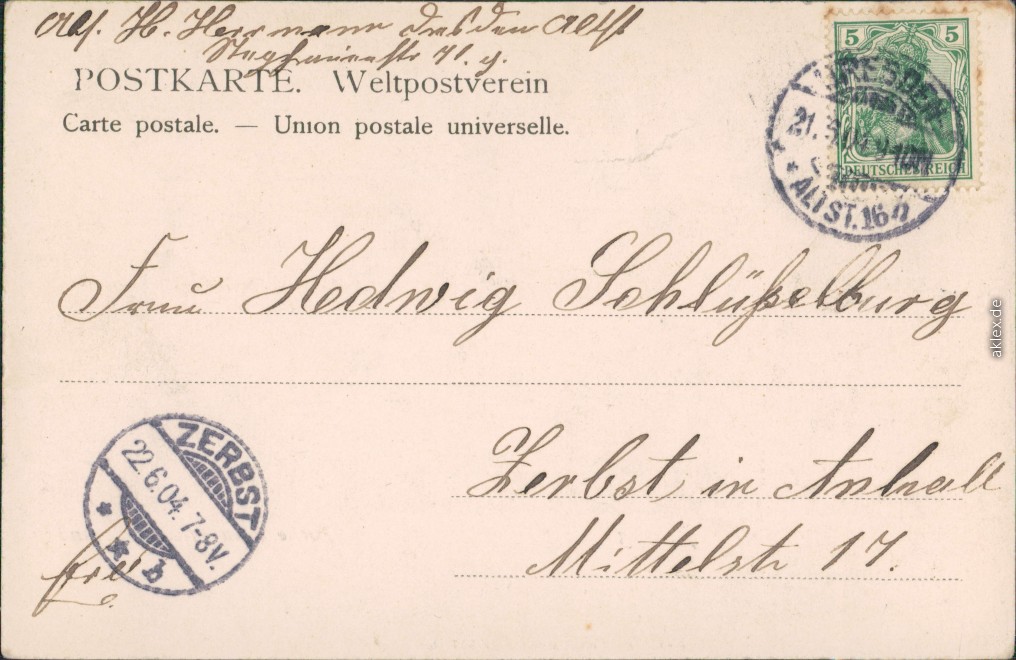 Abs. H. Herrmann Dresden Altst
41. g.
POSTKARTE. Weltpostverein
Carte postale. — Union postale universelle.
5 5
DEUTSCHES REICH
DRESDEN
21. 04. 9-10
ALTST. 16 n
Frau Hedwig Schlüßelburg
aklex.de
ZERBST
22.6.04. 7-8V.
* * b
Zerbst in Anhalt
Mittelstr 17.
frei